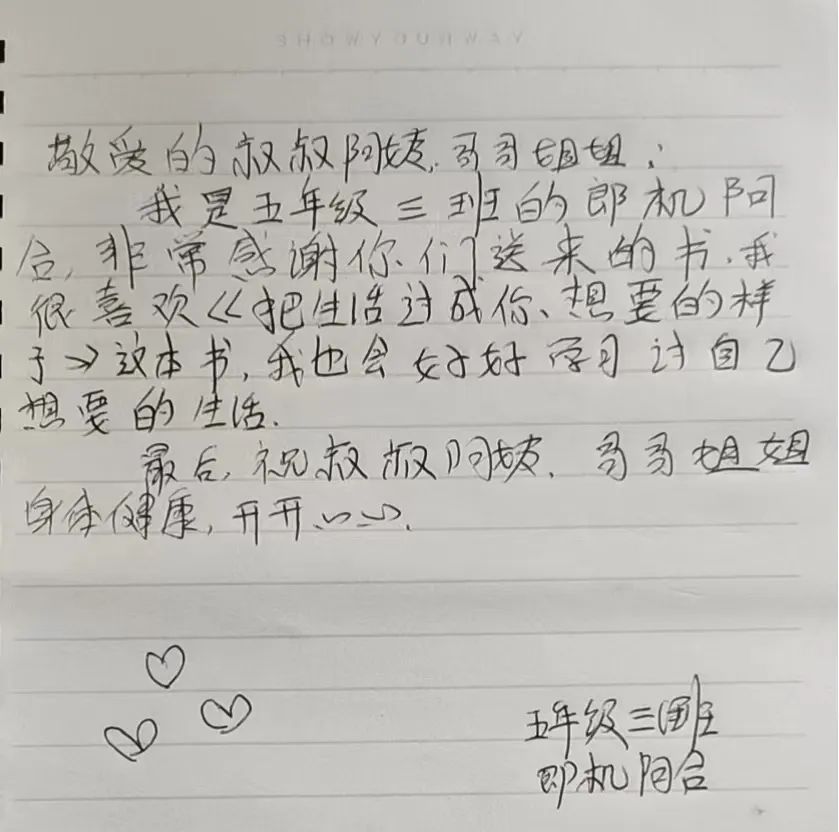 敬爱的叔叔阿姨、哥哥姐姐：
我是五年级三班的郎机阿
合，非常感谢你们送来的书，我
很喜欢《把生活过成你想要的样
子》这本书，我也会好好学习过自己
想要的生活。
最后，祝叔叔阿姨、哥哥姐姐
身体健康，开开心心。
五年级三班
郎机阿合